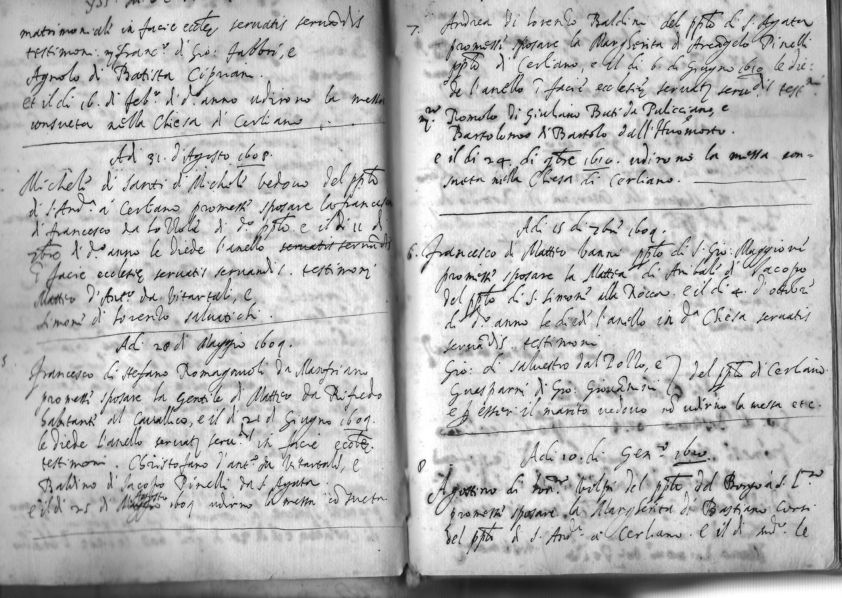 matrimoniali in facie eccles servatis servandis
testimoni Franc.º di Gio: fabbri, e
Agnolo di Batista Cipriani.
et il di 16. di feb.º di d.º anno udirono la messa
consueta nella Chiesa di Cerliano
Adi 31. d'Agosto 1608.
Michele di Santi di Michele vedovo del ppto
di S. And.ª a Cerliano promesse sposare la francesca
di francesco da di d.º ppto e il di 11 di
di d.º anno le diede l'anello servatis servandis
i facie ecclesię servatis servandis. testimoni
Matteo d'Ant.º da Vitartali, e
Simone di Lorenzo salvatichi.
Adi 28 di Maggio 1609.
5.
francesco di stefano Romagnuoli da Manfriano
promesse sposare la Gentile di Matteo da Rifredo
habitanti al Cavallico, e il di 21 di Giugno 1609.
le diede l'anello servatis serv. in facie eccles.
testimoni. Christofano d'Ant.º da Vitartali, e
Baldino di Jacopo Pinelli da S. Agata.
e il di 25 di Agosto 1609 udirno la messa consueta
7.
Andrea di Lorenzo Baldini del ppto di S. Agata
promesse sposare la Margherita di Arcagelo Pinelli
ppto di Cerliano, e il di 6 di Giugno 1610 le die-
de l'anello i facie ecclesię servatis servandis test
Romolo di Giuliano Buti da Puliciano, e
Bartolomeo di Bartolo dall'Huomorto.
e il di 24. di 1610. udirono la messa con-
sueta nella Chiesa di Cerliano.
Adi 15 di 7bre 1609.
6.
francesco di Matteo vanni ppto di S. Gio: Maggiore
promesse sposare la Mattea di Anibale di Jacopo
del ppto di S. Simone alla Rocca. e il di 4. d'ottobre
di d.º anno le diede l'anello in d.ª Chiesa servatis
servandis testimoni
Gio: di salvestro dal Pollo, e
Guasparri di Gio: del ppto di Cerliano.
e p esser il marito vedovo nō udirno la messa etc.
Adi 10. di Gen.º 1610.
8
Agostino di Volpi del ppto del Borgo a S. L.zo
promesse sposare la Margherita di Bastiano Corsi
del ppto di S. And.ª a Cerliano. e il di le